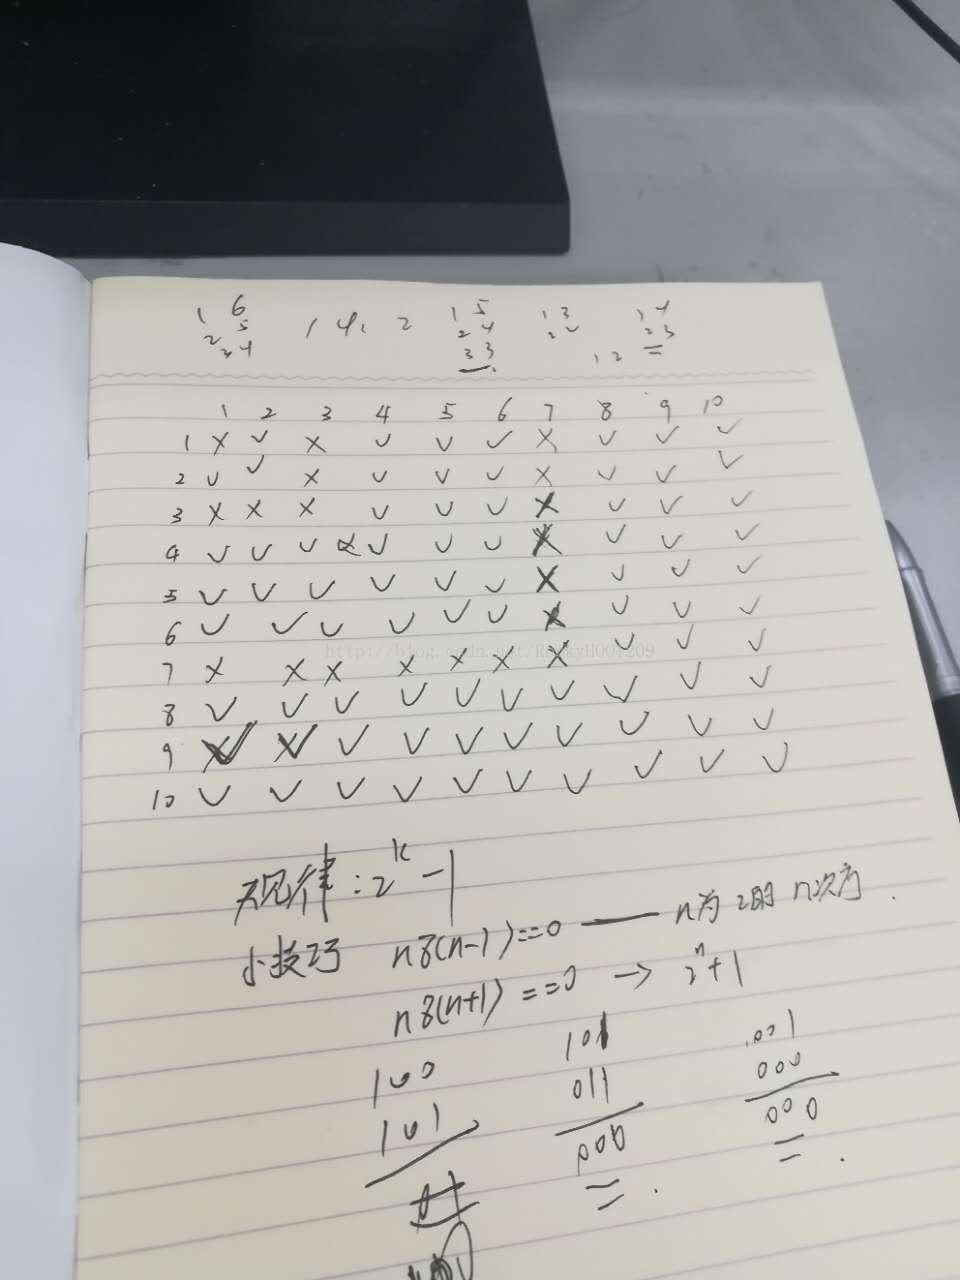 1 6 1 4, 2 1 5 1 3 1 4
2 5 2 4 2 2 3
3 4 3 3 1 2
1 2 3 4 5 6 7 8 9 10
1 × ✓ × ✓ ✓ ✓ × ✓ ✓ ✓
2 ✓ ✓ × ✓ ✓ ✓ × ✓ ✓ ✓
3 × × × ✓ ✓ ✓ × ✓ ✓ ✓
4 ✓ ✓ ✓ ✓ ✓ ✓ × ✓ ✓ ✓
5 ✓ ✓ ✓ ✓ ✓ ✓ × ✓ ✓ ✓
6 ✓ ✓ ✓ ✓ ✓ ✓ × ✓ ✓ ✓
7 × × × × × × × ✓ ✓ ✓
8 ✓ ✓ ✓ ✓ ✓ ✓ ✓ ✓ ✓ ✓
9 ✓ ✓ ✓ ✓ ✓ ✓ ✓ ✓ ✓ ✓
10 ✓ ✓ ✓ ✓ ✓ ✓ ✓ ✓ ✓ ✓
规律:2^k-1
小技巧 n&(n-1)==0 —— n为2的n次方.
n&(n+1)==0 → 2^n+1
100 101 001
101 011 000
000 000